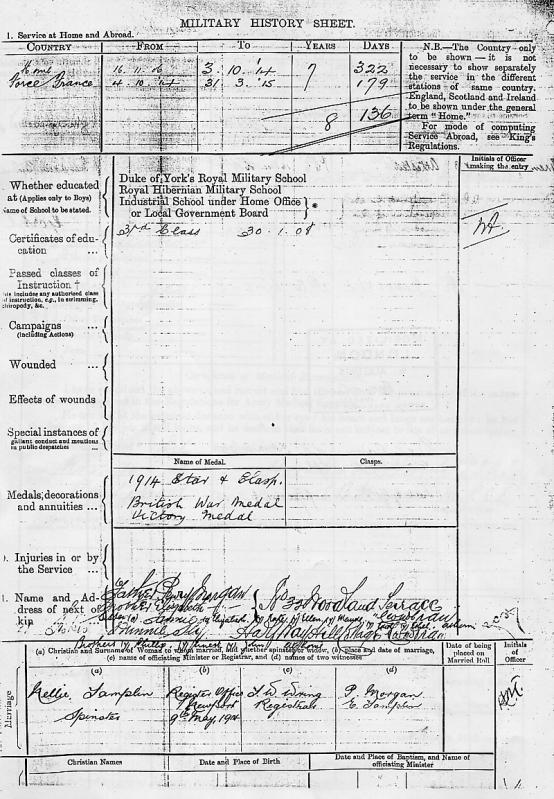 MILITARY HISTORY SHEET.
1. Service at Home and Abroad.
COUNTRY FROM TO YEARS DAYS
Home 16. 11. 06 3. 10. '14 7 322
Force France 4. 10. '14 31 3. '15 179
8 136
N.B.—The Country only
to be shown—it is not
necessary to show separately
the service in the different
stations of same country.
England, Scotland and Ireland
to be shown under the general
term "Home."
For mode of computing
Service Abroad, see King's
Regulations.
Initials of Officer
making the entry
Whether educated
at (Applies only to Boys)
Name of School to be stated.
Duke of York's Royal Military School
Royal Hibernian Military School
Industrial School under Home Office
or Local Government Board
*
Certificates of edu-
cation ...
3rd Class 30. 1. 08
Passed classes of
Instruction †
this includes any authorised class
of instruction, e.g., in swimming,
chiropody, &c.
Campaigns ...
(including Actions)
Wounded ...
Effects of wounds
Special instances of
gallant conduct and mentions
in public despatches ...
Name of Medal. Clasps.
Medals, decorations
and annuities ...
1914 Star & Clasp.
British War Medal
Victory Medal
Injuries in or by
the Service ...
Name and Ad-
dress of next of
kin
Father Henry Morgan
Mother Elizabeth
No 33 Woodland Terrace
(a) Christian and Surname of Woman to whom married, and whether spinster or widow, (b) place and date of marriage,
(c) name of officiating Minister or Registrar, and (d) names of two witnesses
Date of being
placed on
Married Roll
Initials
of
Officer
(a) (b) (c) (d)
Marriage
Nellie Tamplin
Spinster
Register Office
Newport
9th May, 1914
Registrar
P. Morgan
C. Tamplin
Christian Names
Date and Place of Birth
Date and Place of Baptism, and Name of
officiating Minister